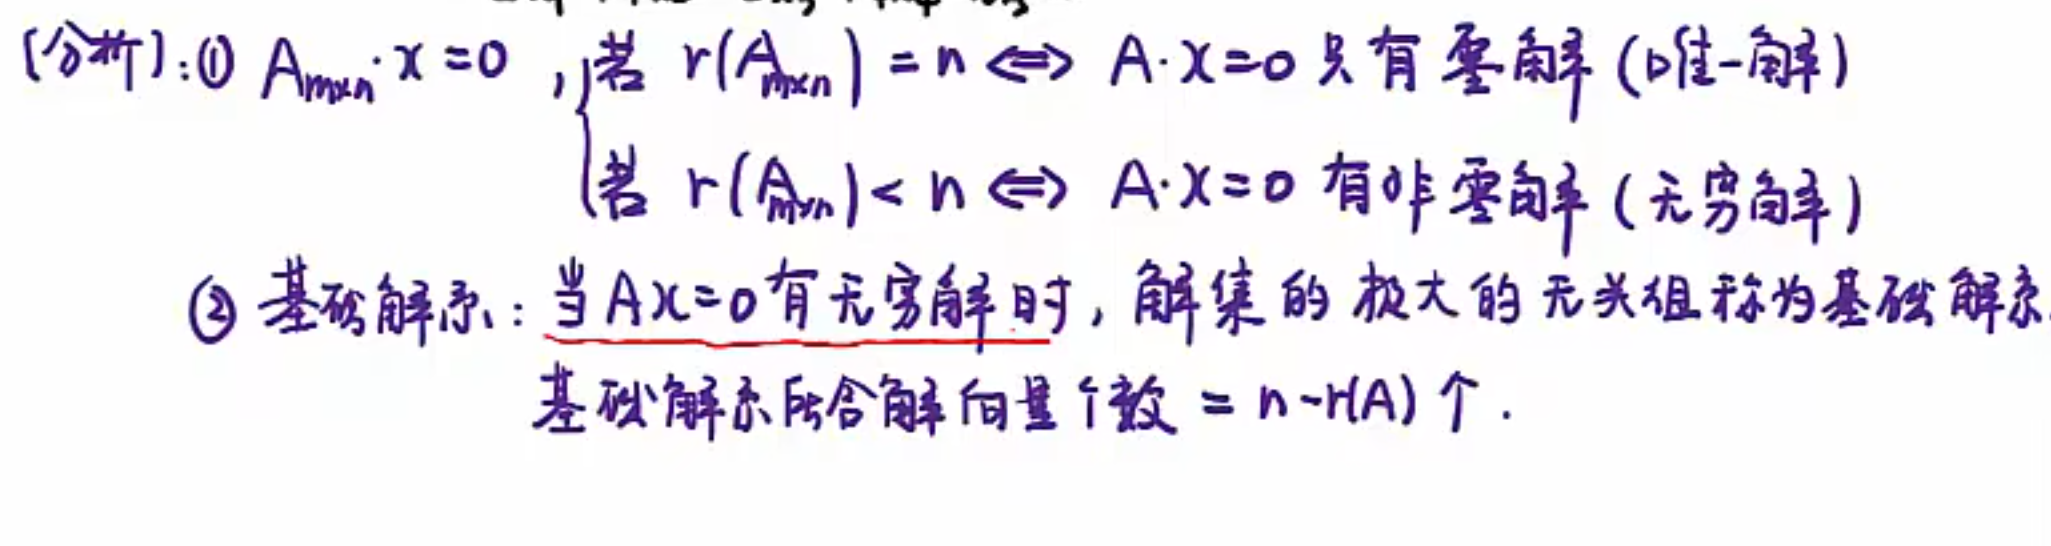 [分析]:① Aₘₓₙ·x=0，{若 r(Aₘₓₙ)=n ⇔ A·x=0只有零解(唯一解)
若 r(Aₘₓₙ)<n ⇔ A·x=0有非零解(无穷解)
② 基础解系:当Ax=0有无穷解时,解集的极大的无关组称为基础解系.
基础解系所含解向量个数=n-r(A)个.